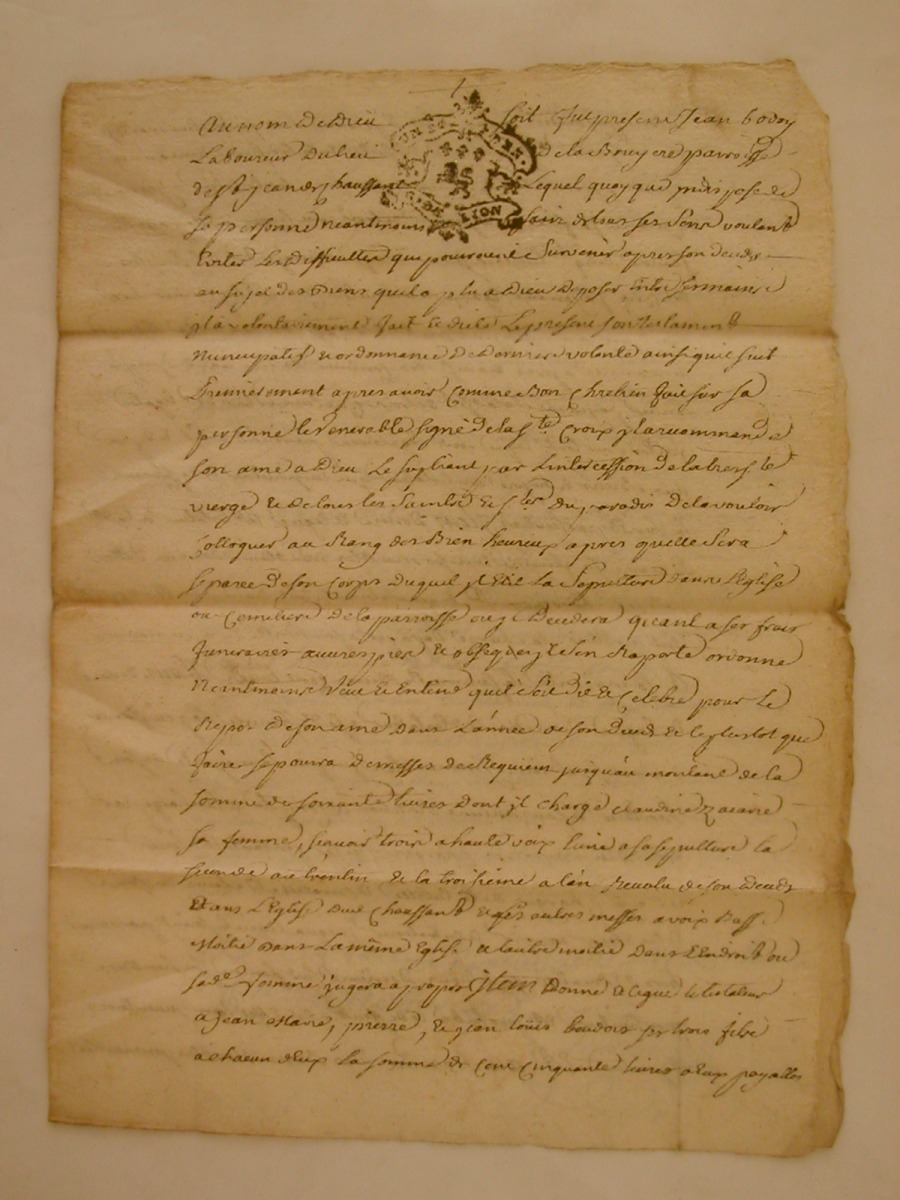 Au nom de Dieu soit fut present Jean bodoy
Laboureur du lieu de la Bruyere parroisse
de st jean de chaussant Lequel quoyque indispose de
sa personne neantmoins sain de tous ses sens voulant
Eviter les difficultes qui pouroient Survenir apres son deceds
au sujet des Biens quil a plu a Dieu deposer entre ses mains
jl a volontairement fait et dicté Le present son testament
nuncupatif et ordonnance de derniere volonté ainsi que suit
Premierement apres avoir comme Bon Chretien fait sur sa
personne le venerable signe de la ste Croix jl a recommandé
son ame a Dieu Le supliant par Lintercession de la tres ste
vierge et de tous les saints et stes du paradis de la vouloir
Colloquer au Rang des Bien heureux apres quelle sera
separée de son Corps duquel jl Elit la Sepulture dans l'Eglise
ou Cemetiere de la parroisse ou jl decedera quant a ses frais
funeraires œuvres pies et obseques jl s'en raporte ordonne
Neantmoins veut et entend quil soit dit et celebré pour le
Repos de son ame dans L'année de son deceds et le plustot que
faire se poura de messes de Requiem jusqu'au montant de la
somme de soixante livres dont jl charge claudine zacarie
sa femme, scavoir trois a haute voix l'une a sa sepulture la
seconde au trentin et la troisieme a l'an Revolu de son deceds
dans L'Eglise dud Chaussant et les autres messes a voix Basse
Moitié dans La même Eglise et l'autre moitié dans L'Endroit ou
sade femme jugera a propos Jtem Donne et legue le testateur
a jean Marie, pierre, et jean louis boudoir ses trois fils
a chacun d'Eux la somme de cent cinquante livres a Eux payables
UN SOL DEN
GEN. DE LYON